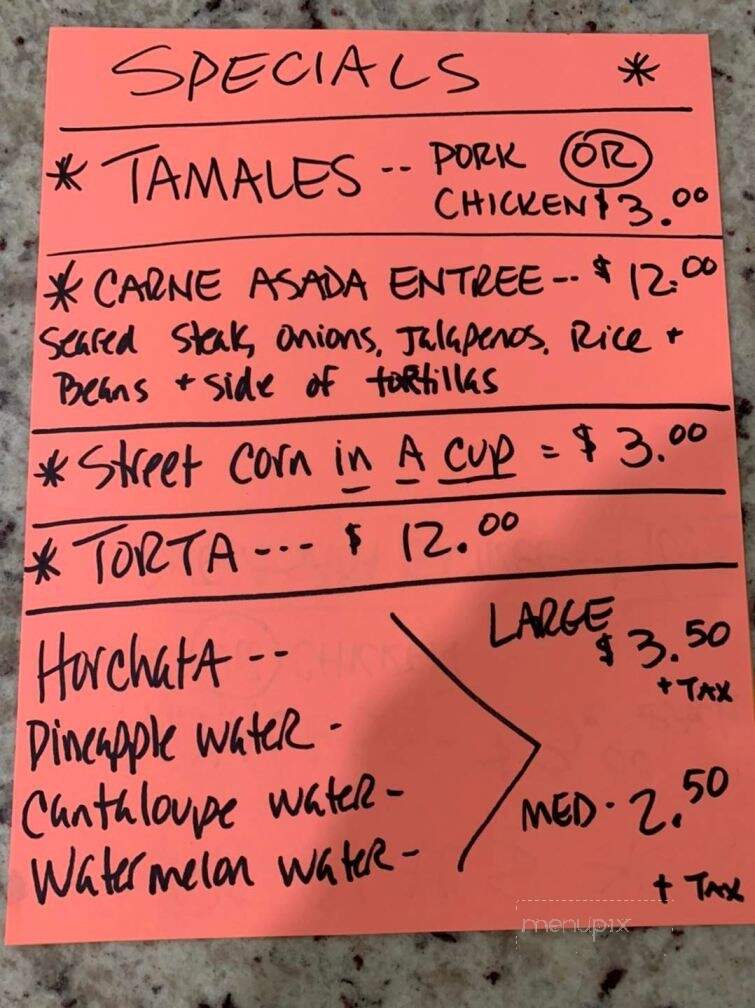 SPECIALS *
* TAMALES -- PORK OR
CHICKEN $3.00
* CARNE ASADA ENTREE -- $12.00
Seared Steak, onions, Jalapenos, Rice +
Beans + side of tortillas
* Street corn in A cup = $3.00
* TORTA --- $12.00
Horchata --
Pineapple water -
Cantaloupe water -
Watermelon water -
LARGE
$3.50
+ TAX
MED - 2.50
+ TAX
menupix